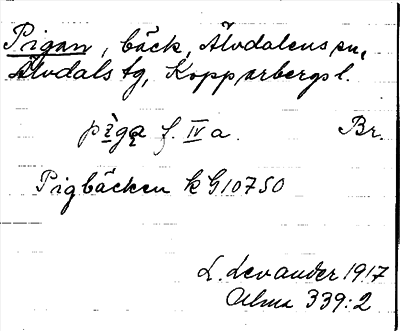 Pigan, bäck, Älvdalens sn,
Älvdals tg, Kopparbergs l.
pìga f. IV a. Br.
Pigbäcken k G10750
L. Levander 1917
Ulma 339:2